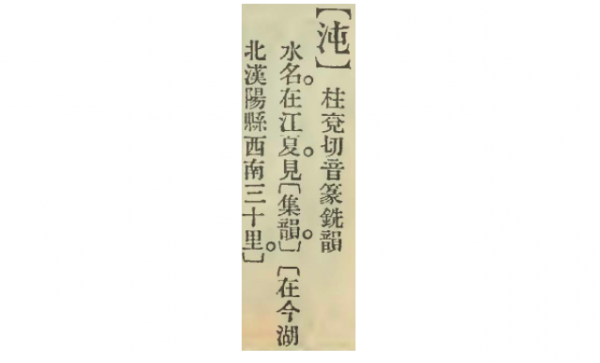 【沌】
柱兗切音篆銑韻
水名。在江夏。見〔集韻。〕〔在今湖
北漢陽縣西南三十里。〕